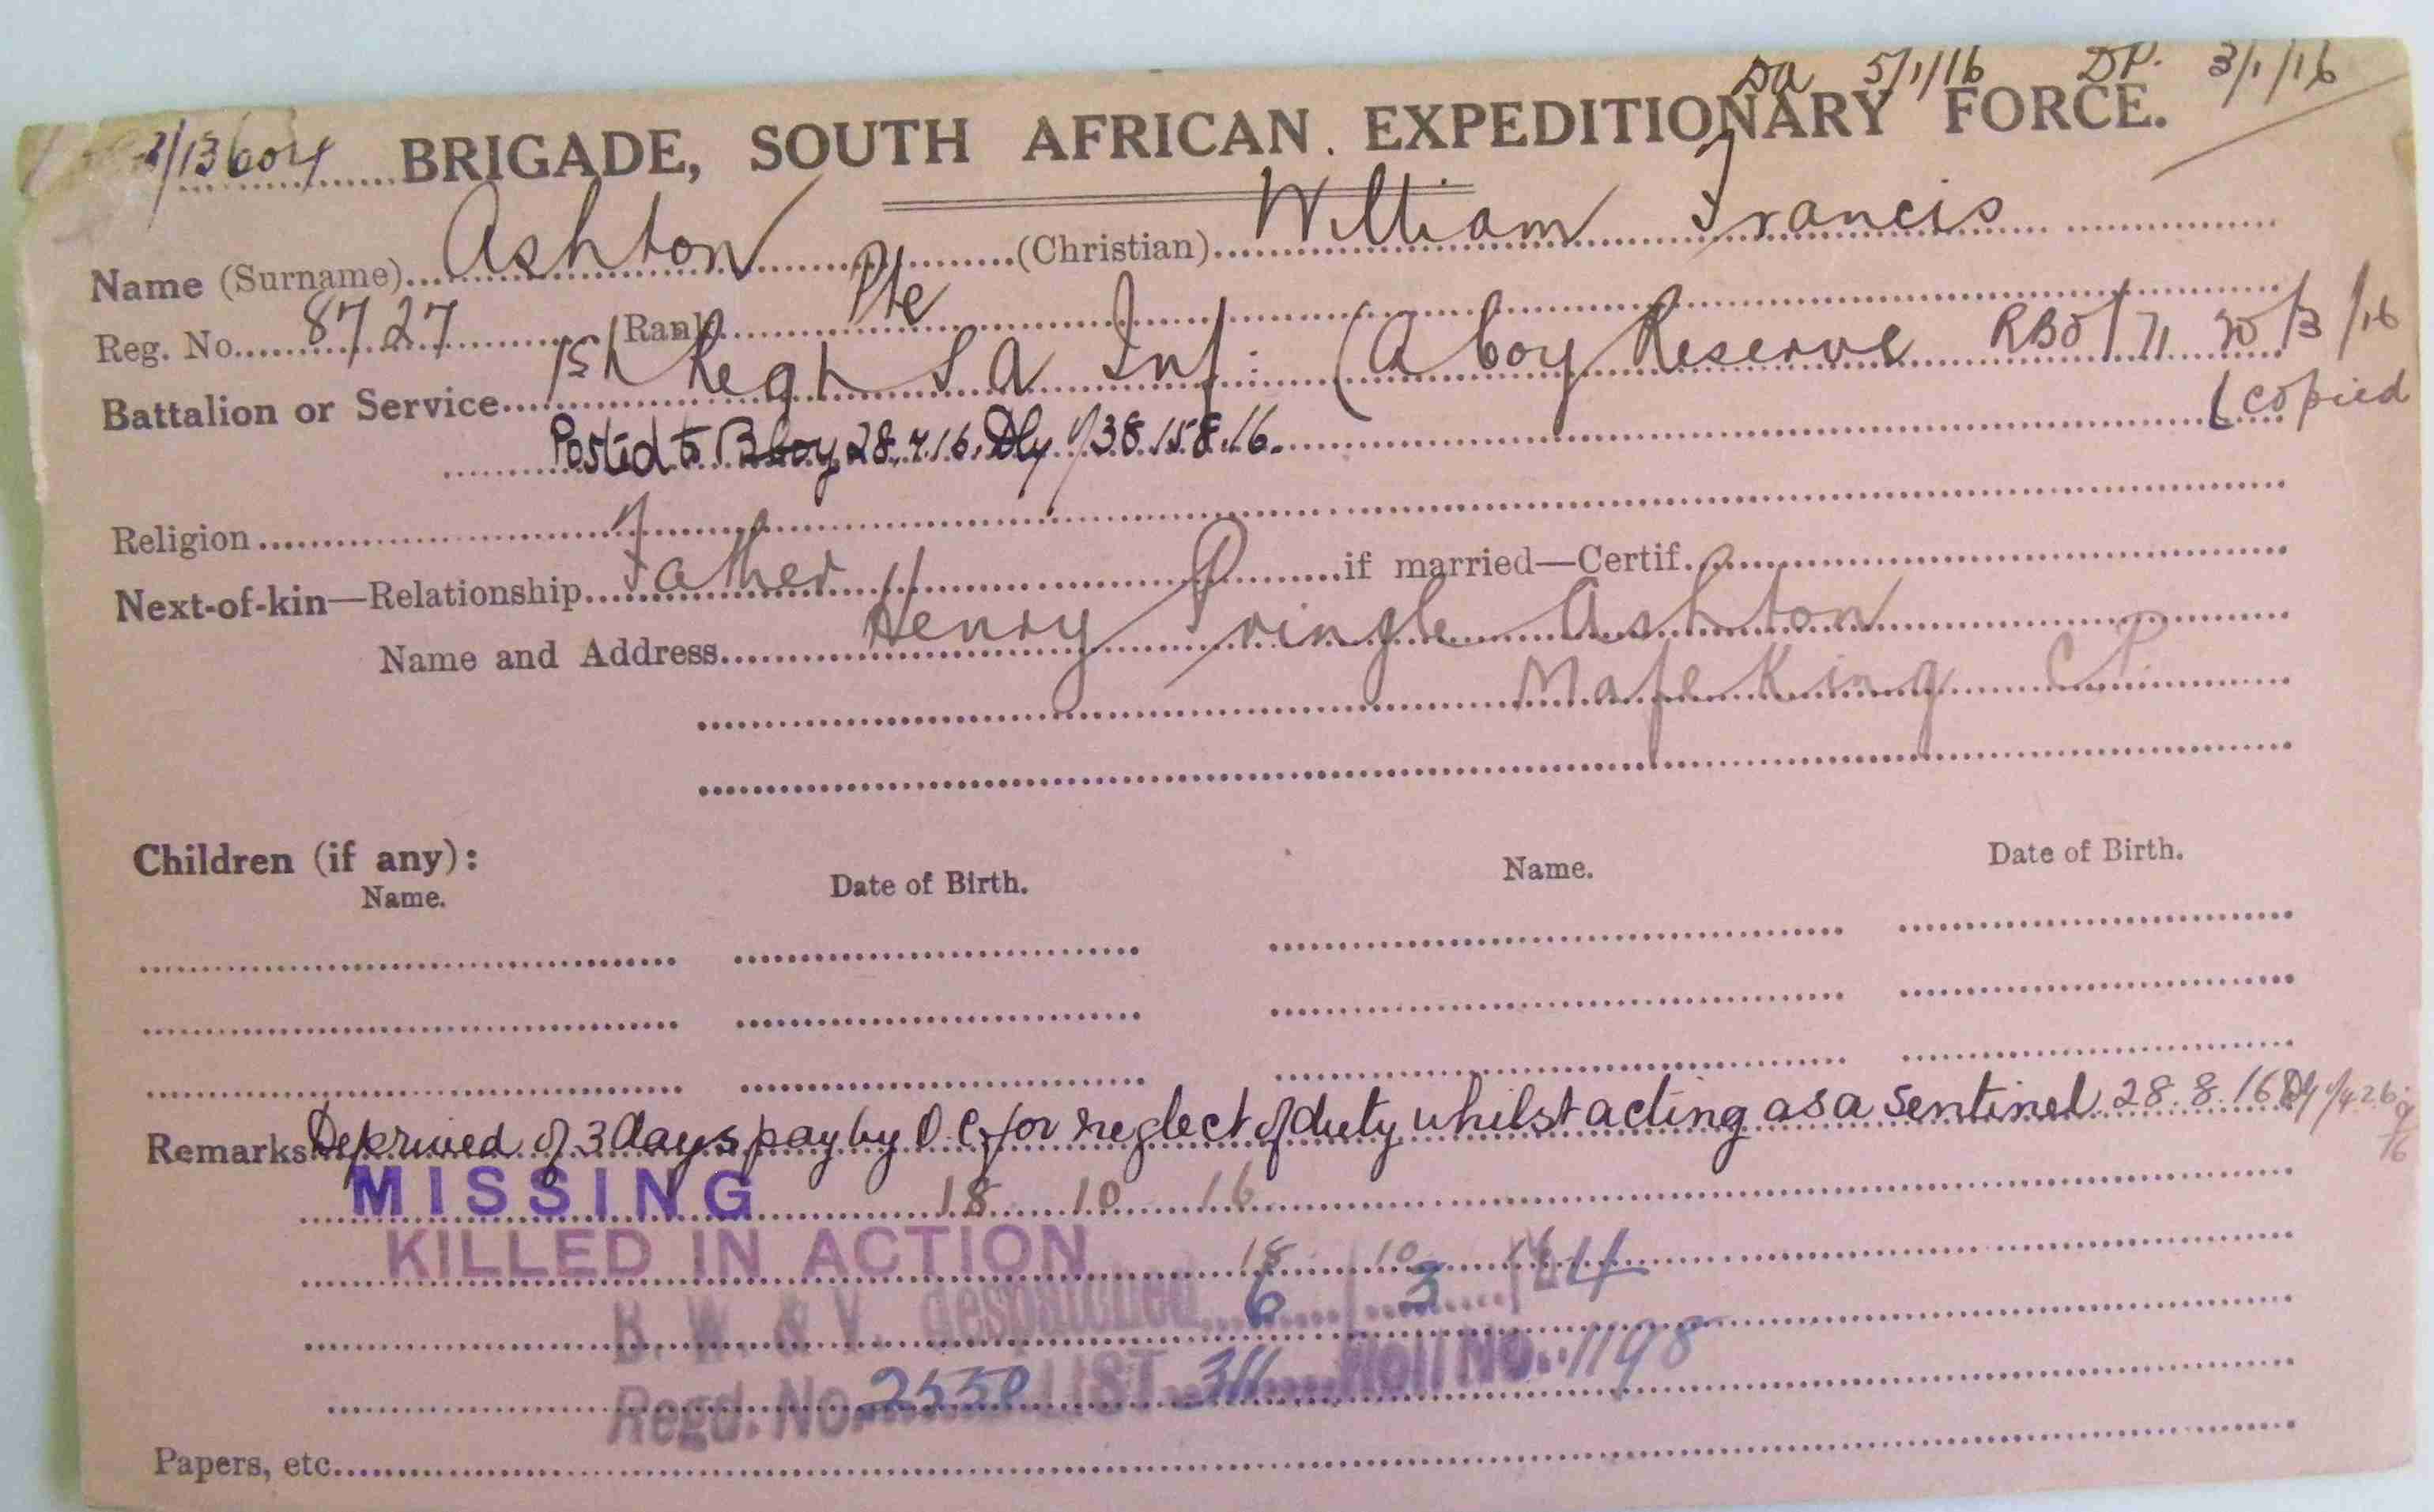 Da 5/1/16 DP. 3/1/16
BRIGADE, SOUTH AFRICAN. EXPEDITIONARY FORCE.
Name (Surname) Ashton (Christian) William Francis
Reg. No. 8727 Rank Pte
Battalion or Service 1st Regt S A Inf: (A Coy Reserve RBO/71 20/3/16
Posted to B Coy 28.7.16. Dly 38.15.8.16. (copied
Religion
Next-of-kin—Relationship Father if married—Certif.
Name and Address Henry Pringle Ashton
Mafeking C P.
Children (if any):
Name. Date of Birth. Name. Date of Birth.
Remarks Deprived of 3 days pay by O.C. for neglect of duty whilst acting as a sentinel 28.8.16
MISSING 18 10 16
KILLED IN ACTION 18 / 10 / 16
B. W. & V. despatched 6 3 24
Regd. No. 2550 LIST 311 Roll No. 1198
Papers, etc.